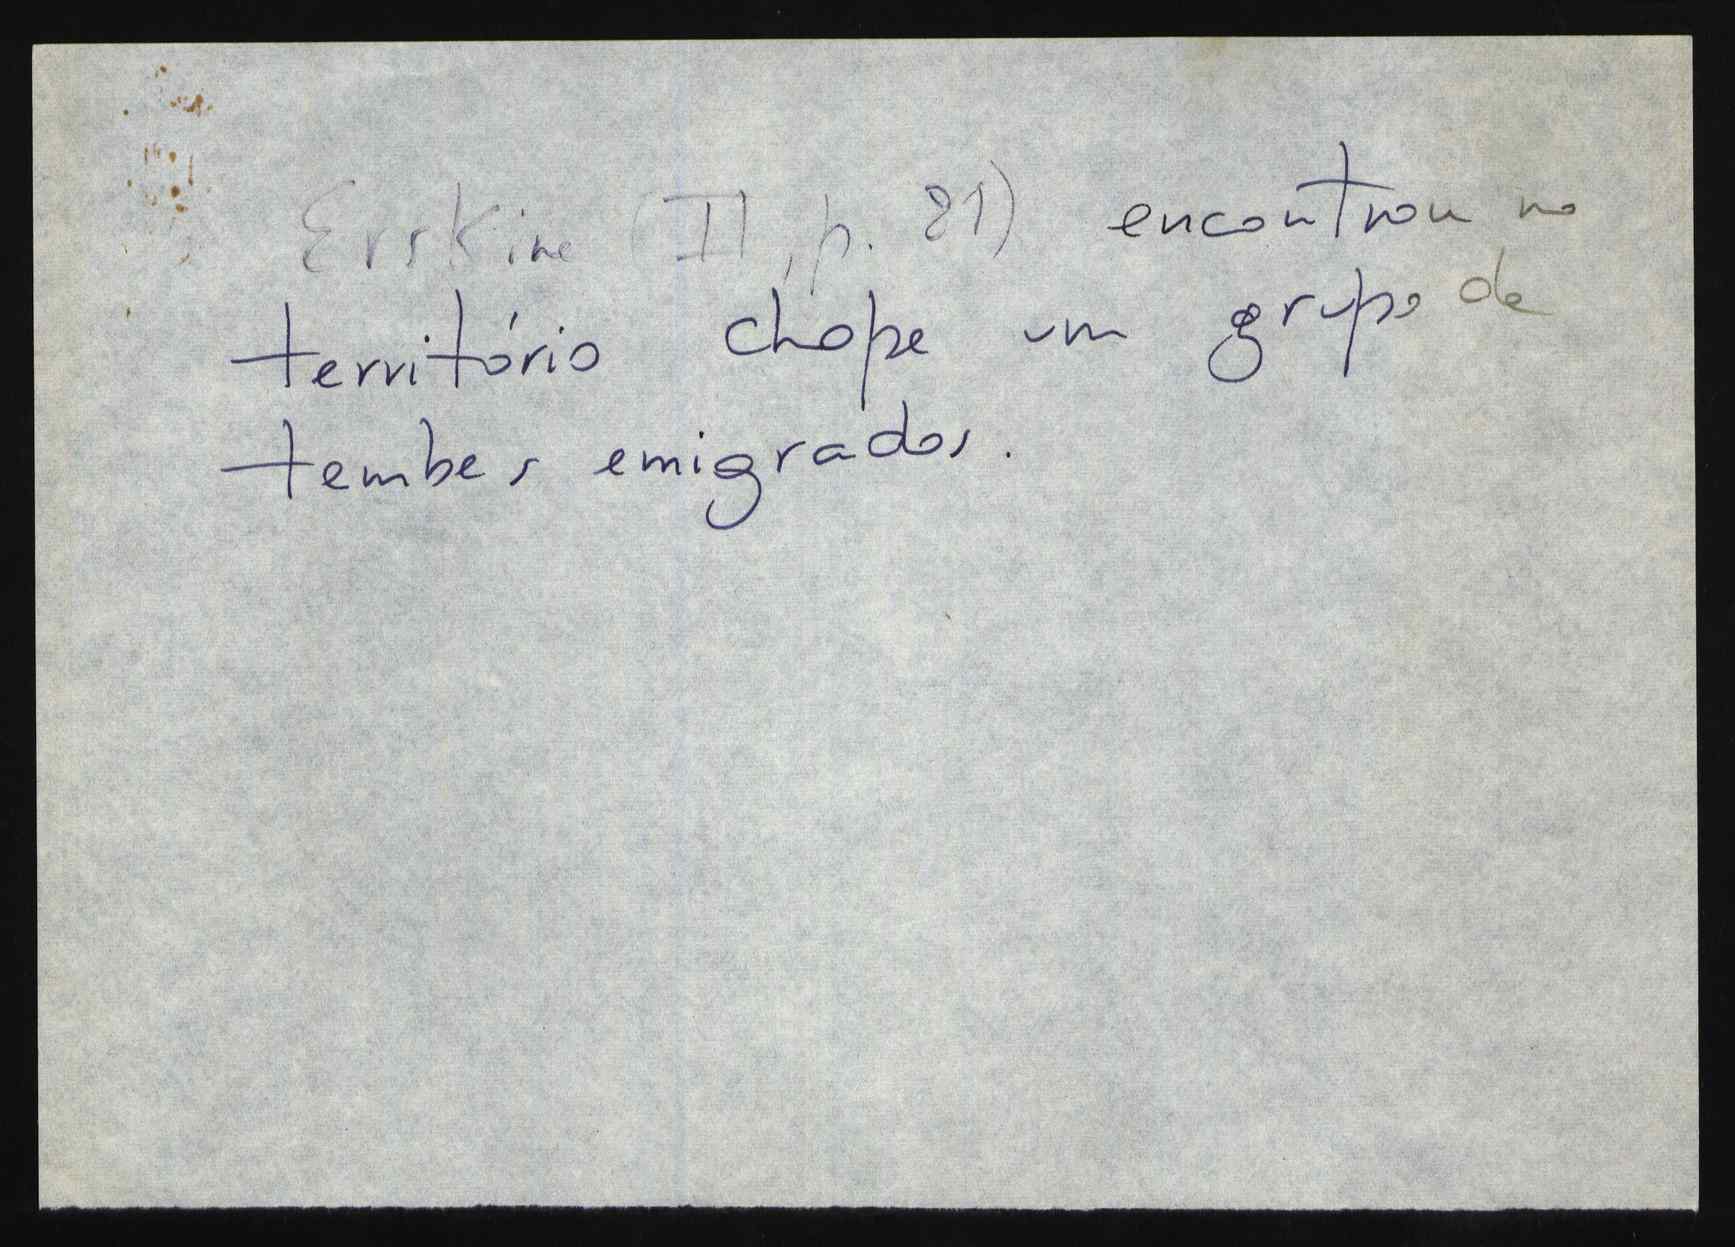 Erskine (II, p. 81) encontrou no
território chope um grupo de
tembes emigrados.